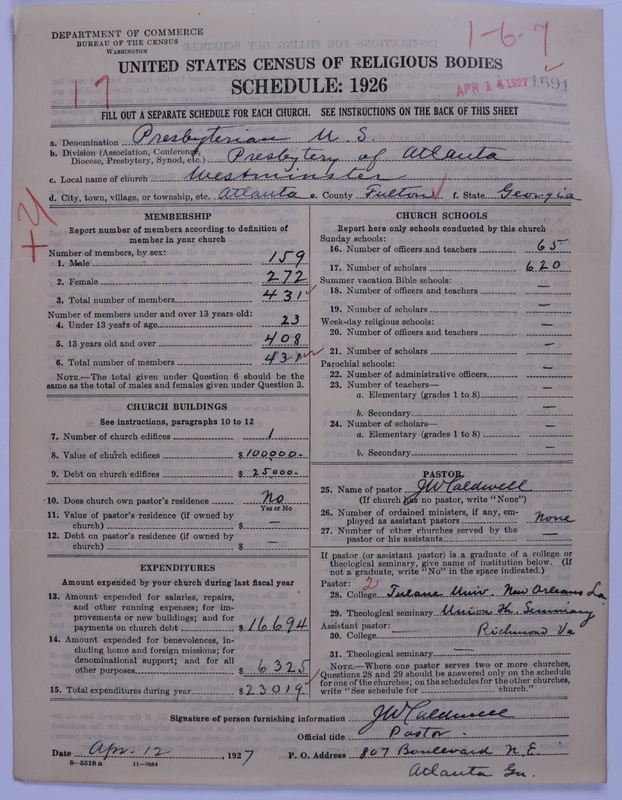 DEPARTMENT OF COMMERCE
BUREAU OF THE CENSUS
WASHINGTON
1-6-7
UNITED STATES CENSUS OF RELIGIOUS BODIES
SCHEDULE: 1926
17
APR 18 1927 1591
FILL OUT A SEPARATE SCHEDULE FOR EACH CHURCH. SEE INSTRUCTIONS ON THE BACK OF THIS SHEET
a. Denomination Presbyterian U.S.
b. Division (Association, Conference, Diocese, Presbytery, Synod, etc.) Presbytery of Atlanta
c. Local name of church Westminster
d. City, town, village, or township, etc. Atlanta e. County Fulton f. State Georgia
MEMBERSHIP
Report number of members according to definition of
member in your church
Number of members, by sex:
1. Male 159
2. Female 272
3. Total number of members 431
Number of members under and over 13 years old:
4. Under 13 years of age 23
5. 13 years old and over 408
6. Total number of members 431
NOTE.—The total given under Question 6 should be
same as the total of males and females given under Question 3.
CHURCH BUILDINGS
See instructions, paragraphs 10 to 12
7. Number of church edifices 1
8. Value of church edifices $100000-
9. Debt on church edifices $25000-
10. Does church own pastor's residence No
Yes or No
11. Value of pastor's residence (if owned by
church) $ —
12. Debt on pastor's residence (if owned by
church) $ —
EXPENDITURES
Amount expended by your church during last fiscal year
13. Amount expended for salaries, repairs,
and other running expenses; for im-
provements or new buildings; and for
payments on church debt $16694
14. Amount expended for benevolences, in-
cluding home and foreign missions; for
denominational support; and for all
other purposes $6325
15. Total expenditures during year $23019
CHURCH SCHOOLS
Report here only schools conducted by this church
Sunday schools:
16. Number of officers and teachers 65
17. Number of scholars 620
Summer vacation Bible schools:
18. Number of officers and teachers —
19. Number of scholars —
Week-day religious schools:
20. Number of officers and teachers —
21. Number of scholars —
Parochial schools:
22. Number of administrative officers —
23. Number of teachers—
a. Elementary (grades 1 to 8) —
b. Secondary —
24. Number of scholars—
a. Elementary (grades 1 to 8) —
b. Secondary —
PASTOR
25. Name of pastor JW Caldwell
(If church has no pastor, write "None")
26. Number of ordained ministers, if any, em-
ployed as assistant pastors None
27. Number of other churches served by the
pastor or his assistants —
If pastor (or assistant pastor) is a graduate of a college or
theological seminary, give name of institution below. (If
not a graduate, write "No" in the space indicated.)
Pastor: 2
28. College Tulane Univ. New Orleans La
29. Theological seminary Union Th. Seminary
Assistant pastor: Richmond Va
30. College —
31. Theological seminary —
NOTE.—Where one pastor serves two or more churches,
Questions 28 and 29 should be answered only on the schedule
for one of the churches; on the schedules for the other churches,
write "See schedule for ______ church."
Signature of person furnishing information JW Caldwell
Official title Pastor
Date Apr. 12, 1927 P. O. Address 807 Boulevard N.E.
6-5518a 11-9684 Atlanta Ga.